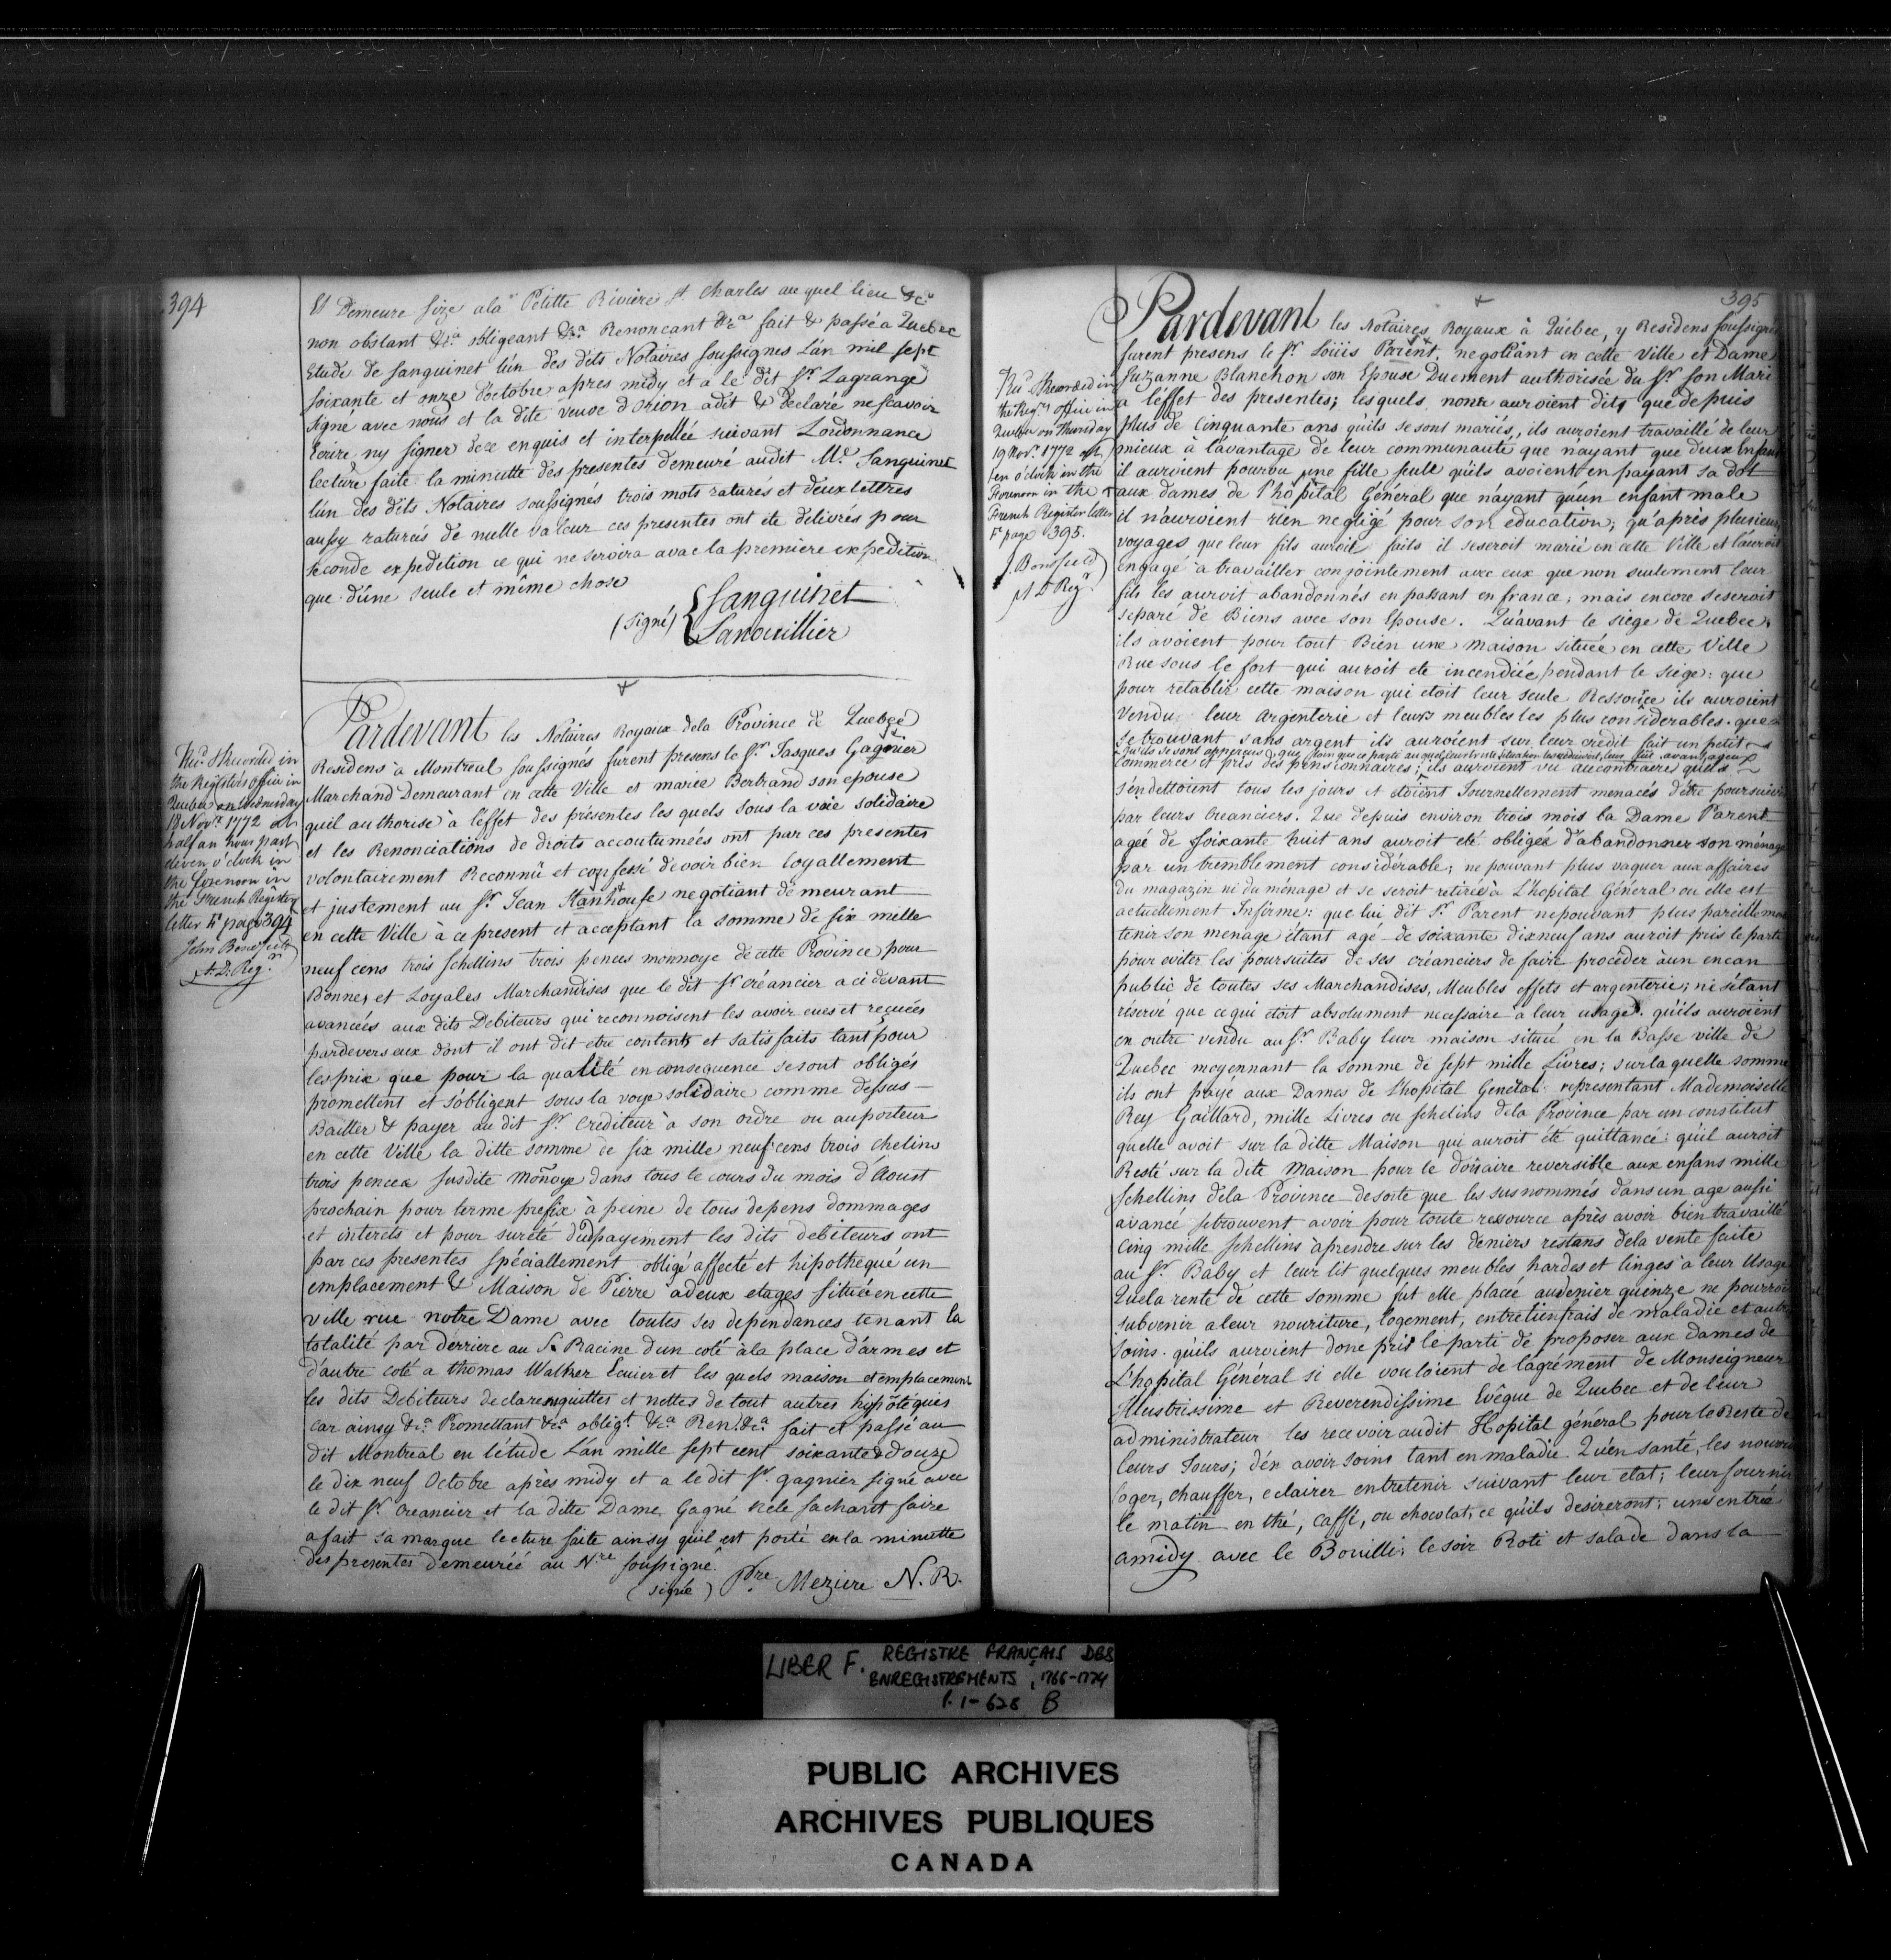 394
Et Demeure size ala Petitte Riviere St Charles au quel lieu &ca
non obstant &ca obligeant &ca Renoncant &ca fait & passé a Quebec
Etude de Sanguinet l'ún des dits Notaires soussignes L'án mil sept
soixante et onze d'octobre apres midy et a le dit Sr. Lagrange
signé avec nous et la dite veuve dorion adit & declaré ne scavoir
Ecrire ny signer dece enquis et interpellée suivant Lordonnance
lecture faite la minutte des presentes demeuré audit Me. Sanguinet
l'ún des dits Notaires soussignés trois mots raturés et deux lettres
aussy raturés de nulle valeur ces presentes ont ete delivrés pour
seconde expedition ce qui ne servira avac la premiere expedition
que d'úne seule et même chose
(Signé) { Sanguinet
Sanouillier
Pardevant les Notaires Royaux dela Province de Quebec
Residens à Montreal soussignés furent presens le Sr. Jasques Gagnier
Marchand Demeurant en cette Ville et mariee Bertrand son epouse
quil authorise à l'effet des présentes les quels sous la voie solidaire
et les Renonciations de droits accoutumées ont par ces presentes
volontairement Reconnü et confessé devoir bien loyallement
et justement au Sr. Jean Stanhouse negotiant demeurant
en cette Ville à ce present et acceptant la somme de six mille
neuf cens trois schellins trois pences monnoye de cette Province pour
Bonnes et Loyales Marchandises que le dit Sr créancier a ci devant
avancées aux dits Debiteurs qui reconnoisent les avoir eues et reçuées
pardevers eux dont il ont dit etre contents et satisfaits tant pour
les prix que pour la qualité en consequence se sont obligés
promettent et s'obligent sous la voye solidaire comme dessus
Bailler & payer au dit Sr. Crediteur à son ordre ou au porteur
en cette Ville la ditte somme de six mille neuf cens trois chelins
trois pences susdite moñoye dans tous le cours du mois d'Aoust
prochain pour terme prefix à peine de tous depens dommages
et interets et pour sureté dudpayement les dits debiteurs ont
par ces presentes spéciallement obligé affecté et hipothequé un
emplacement & Maison de Pierre adeux etages situé en cette
ville rue notre Dame avec toutes ses dependances tenant la
totalité par derriere au Sr. Racine d'un coté à la place d'armes et
d'autre coté a thomas Walker Ecuier et les quels maison et emplacement
les dits Debiteurs declarenquittes et nettes de tout autres hipôtéques
Car ainsy &ca. Promettant &ca obligt. &ca Ren. &ca. fait et passé au
dit Montreal en l'étude L'án mille sept cent soixante & douze
le dix neuf Octobre apres midy et a le dit Sr. gagnier signé avec
le dit Sr. Creancier et la ditte Dame Gagné Nele sachant faire
a fait sa marque lecture faite ainsy quil est porté en la minutte
des presentes demeurée au Nre. soussigné
(signé) Pre. Meziere N. R.
Recd. & Recorded in
the Registers office in
Quebec on Wednesday
18 Novr. 1772 at
half an hour past
eleven o'clock in
the forenoon in
the French Register
letter F. page 394
John Bonsfield
A. D. Regr.
395
Pardevant les Notaires Royaux à Quebec, y Residens soussignés
furent presens le Sr. Loüis Parent. negotiant en cette Ville et Dame
Suzanne Blanchon son Epouse Duement authorisée du Sr. son Mari
a l'éffet des presentes; lesquels nous auroient dits que depuis
plus de Cinquante ans qúils se sont mariés, ils auroient travaillé de leur
mieux à l'avantage de leur communauté que n'ayant que deux Enfans
il auroient pourvu une fille seule qúils avoient en payant sa dot
aux dames de l'hôpital Général que n'ayant qúun enfant male
il n'auroient rien negligé pour son education; qu'après plusieurs
voyages que leur fils auroit faits il se seroit marié en cette Ville et l'auroit
engagé a travailler conjointement avec eux que non seulement leur
fils les auroit abandonnés en passant en france; mais encore se seroit
separé de Biens avec son Epouse. Qúavant le siege de Quebec
ils avoient pour tout Bien une maison située en cette Ville
Rue sous le fort qui auroit ete incendiée pendant le siege: que
pour retablir cette maison qui etoit leur seule Ressource ils auroient
Vendu leur Argenterie et leurs meubles les plus considerables. que
se trouvant sans argent ils auroient sur leur credit fait un petit
qúils se sont apperçus de que loin que ce parti au quel leur triste situation les reduisoit, leur fut avantageux
Commerce et pris des pensionnaires; ils auroient vu aucontraire quels
s'endettoient tous les jours et etoient Journellement menacés d'être poursuivis
par leurs Creanciers. Que depuis environ trois mois la Dame Parent
agée de soixante huit ans auroit eté obligée d'abandonner son ménage
par un tremblement considérable; ne pouvant plus vaquer aux affaires
du magazin ni du ménage et se seroit retirée à L'hopital Général ou elle est
actuellement Infirme: que lui dit Sr. Parent ne pouvant plus pareillement
tenir son menage étant agé de soixante dixneuf ans auroit pris le parti
pour eviter les poursuites de ses créanciers de faire procéder àun encan
public de toutes ses Marchandises, Meubles effets et argenterie; ne s'étant
réservé que ce qui étoit absolument necessaire à leur usage. qúils auroient
en outre vendu au Sr. Baby leur maison située en la Basse ville de
Quebec moyennant la somme de sept mille Livres; sur laquelle somme
ils ont payé aux Dames de L'hopital General representant Mademoiselle
Rey Gaillard, mille Livres ou schelins dela Province par un constitut
quelle avoit sur la ditte Maison qui auroit été quittancé: qúil auroit
Resté sur la dite Maison pour le doüaire reversible aux enfans mille
schellins dela Province desorte que les susnommés dans un age aussi
avancé se trouvent avoir pour toute ressource après avoir bien travaillé
Cinq mille schellins àprendre sur les deniers restans dela vente faite
au Sr. Baby et leur lit quelques meubles hardes et linges à leur Usage
Quela rente de cette somme fut elle placée audenier quinze ne pourroit
subvenir a leur nouriture, logement, entretien frais de maladie et autres
soins. qúils auroient donc pris le parti de proposer aux Dames de
L'hopital Général si elle vouloient de lagrément de Monseigneur
Illustrissime et Reverendissime Evêque de Quebec et de leur
administrateur les recevoir audit Hopital général pour le Reste de
leurs Jours; d'en avoir soins tant en maladie Qúen santé, les nourir
loger, chauffer, eclairer entretenir suivant leur etat; leur fournir
le matin en thé, Caffé, ou chocolat, ce qúils desireront; une entrée
amidy avec le Bouilli; le soir Roti et salade dans la
Recd. & Recorded in
the Regrs. office in
Quebec on Thursday
19 Novr. 1772 at
ten o'clock in the
Forenoon in the
French Register letter
F. page 395.
J. Bonsfield
A D Regr.
LIBER F. REGISTRE FRANÇAIS DES
ENREGISTREMENTS, 1766-1774
P. 1-628 B
PUBLIC ARCHIVES
ARCHIVES PUBLIQUES
CANADA